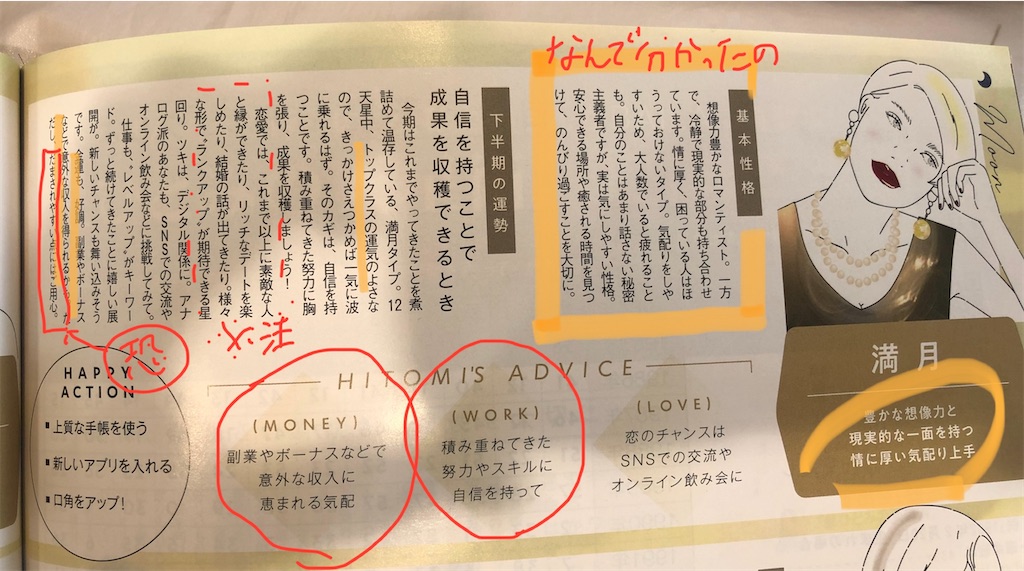 なんで分かったの
Moon
基本性格
想像力豊かなロマンティスト。一方
で、冷静で現実的な部分も持ち合わせ
ています。情に厚く、困っている人はほ
うっておけないタイプ。気配りをしや
すいため、大人数でいると疲れること
も。自分のことはあまり話さない秘密
主義者ですが、実は気にしやすい性格。
安心できる場所や癒される時間を見つ
けて、のんびり過ごすことを大切に。
下半期の運勢
自信を持つことで
成果を収穫できるとき
今期はこれまでやってきたことを煮
詰めて温存している、満月タイプ。12
天星中、トップクラスの運気のよさな
ので、きっかけさえつかめば一気に波
に乗れるはず。そのカギは、自信を持
つことです。積み重ねてきた努力に胸
を張り、成果を収穫しましょう!
恋愛では、これまで以上に素敵な人
と縁ができたり、リッチなデートを楽
しめたり、結婚の話が出てきたり。様々
な形で“ランクアップ”が期待できる星
回り。ツキは、デジタル関係に。アナ
ログ派のあなたも、SNSでの交流や
オンライン飲み会などに挑戦してみて。
仕事も、“レベルアップ”がキーワー
ド。ずっと続けてきたことに嬉しい展
開が。新しいチャンスも舞い込みそう
です。金運も、好調。副業やボーナス
などで意外な収入を得られるかも。た
だし、だまされやすい点にはご用心。
恐
満月
豊かな想像力と
現実的な一面を持つ
情に厚い気配り上手
HITOMI'S ADVICE
(LOVE)
恋のチャンスは
SNSでの交流や
オンライン飲み会に
(WORK)
積み重ねてきた
努力やスキルに
自信を持って
(MONEY)
副業やボーナスなどで
意外な収入に
恵まれる気配
HAPPY
ACTION
■上質な手帳を使う
■新しいアプリを入れる
■口角をアップ!